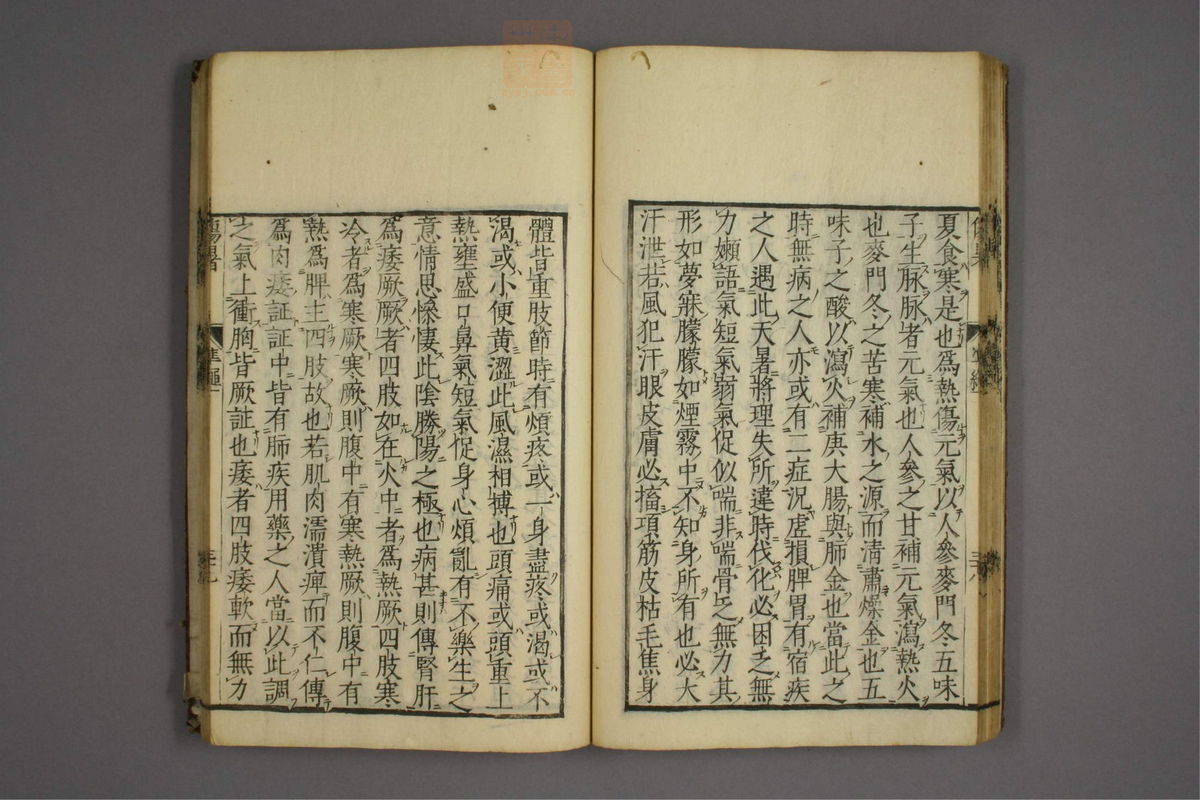 夏食寒是也爲熱傷元氣以人參麥門冬五味
子生脉脉者元氣也人參之甘補元氣瀉熱火
也麥門冬之苦寒補水之源而清肅燥金也五
味子之酸以瀉火補庚大腸與肺金也當此之
時無病之人亦或有二症況虚損脾胃有宿疾
之人遇此天暑將理失所違時伐化必困乏無
力嬾語氣短氣弱氣促似喘非喘骨乏無力其
形如夢寐朦朦如煙霧中不知身所有也必大
汗泄若風犯汗眼皮膚必搐項筋皮枯毛焦身
體皆重肢節時有煩疼或一身盡疼或渴或不
渴或小便黄澀此風濕相搏也頭痛或頭重上
熱壅盛口鼻氣短氣促身心煩亂有不樂生之
意情思慘悽此陰勝陽之極也病甚則傳腎肝
爲痿厥厥者四肢如在火中者爲熱厥四肢寒
冷者爲寒厥寒厥則腹中有寒熱厥則腹中有
熱爲脾主四肢故也若肌肉濡漬痺而不仁傳
爲肉痿証証中皆有肺疾用藥之人當以此調
之氣上衝胸皆厥証也痿者四肢痿軟而無力
傷暑
準繩
三十九